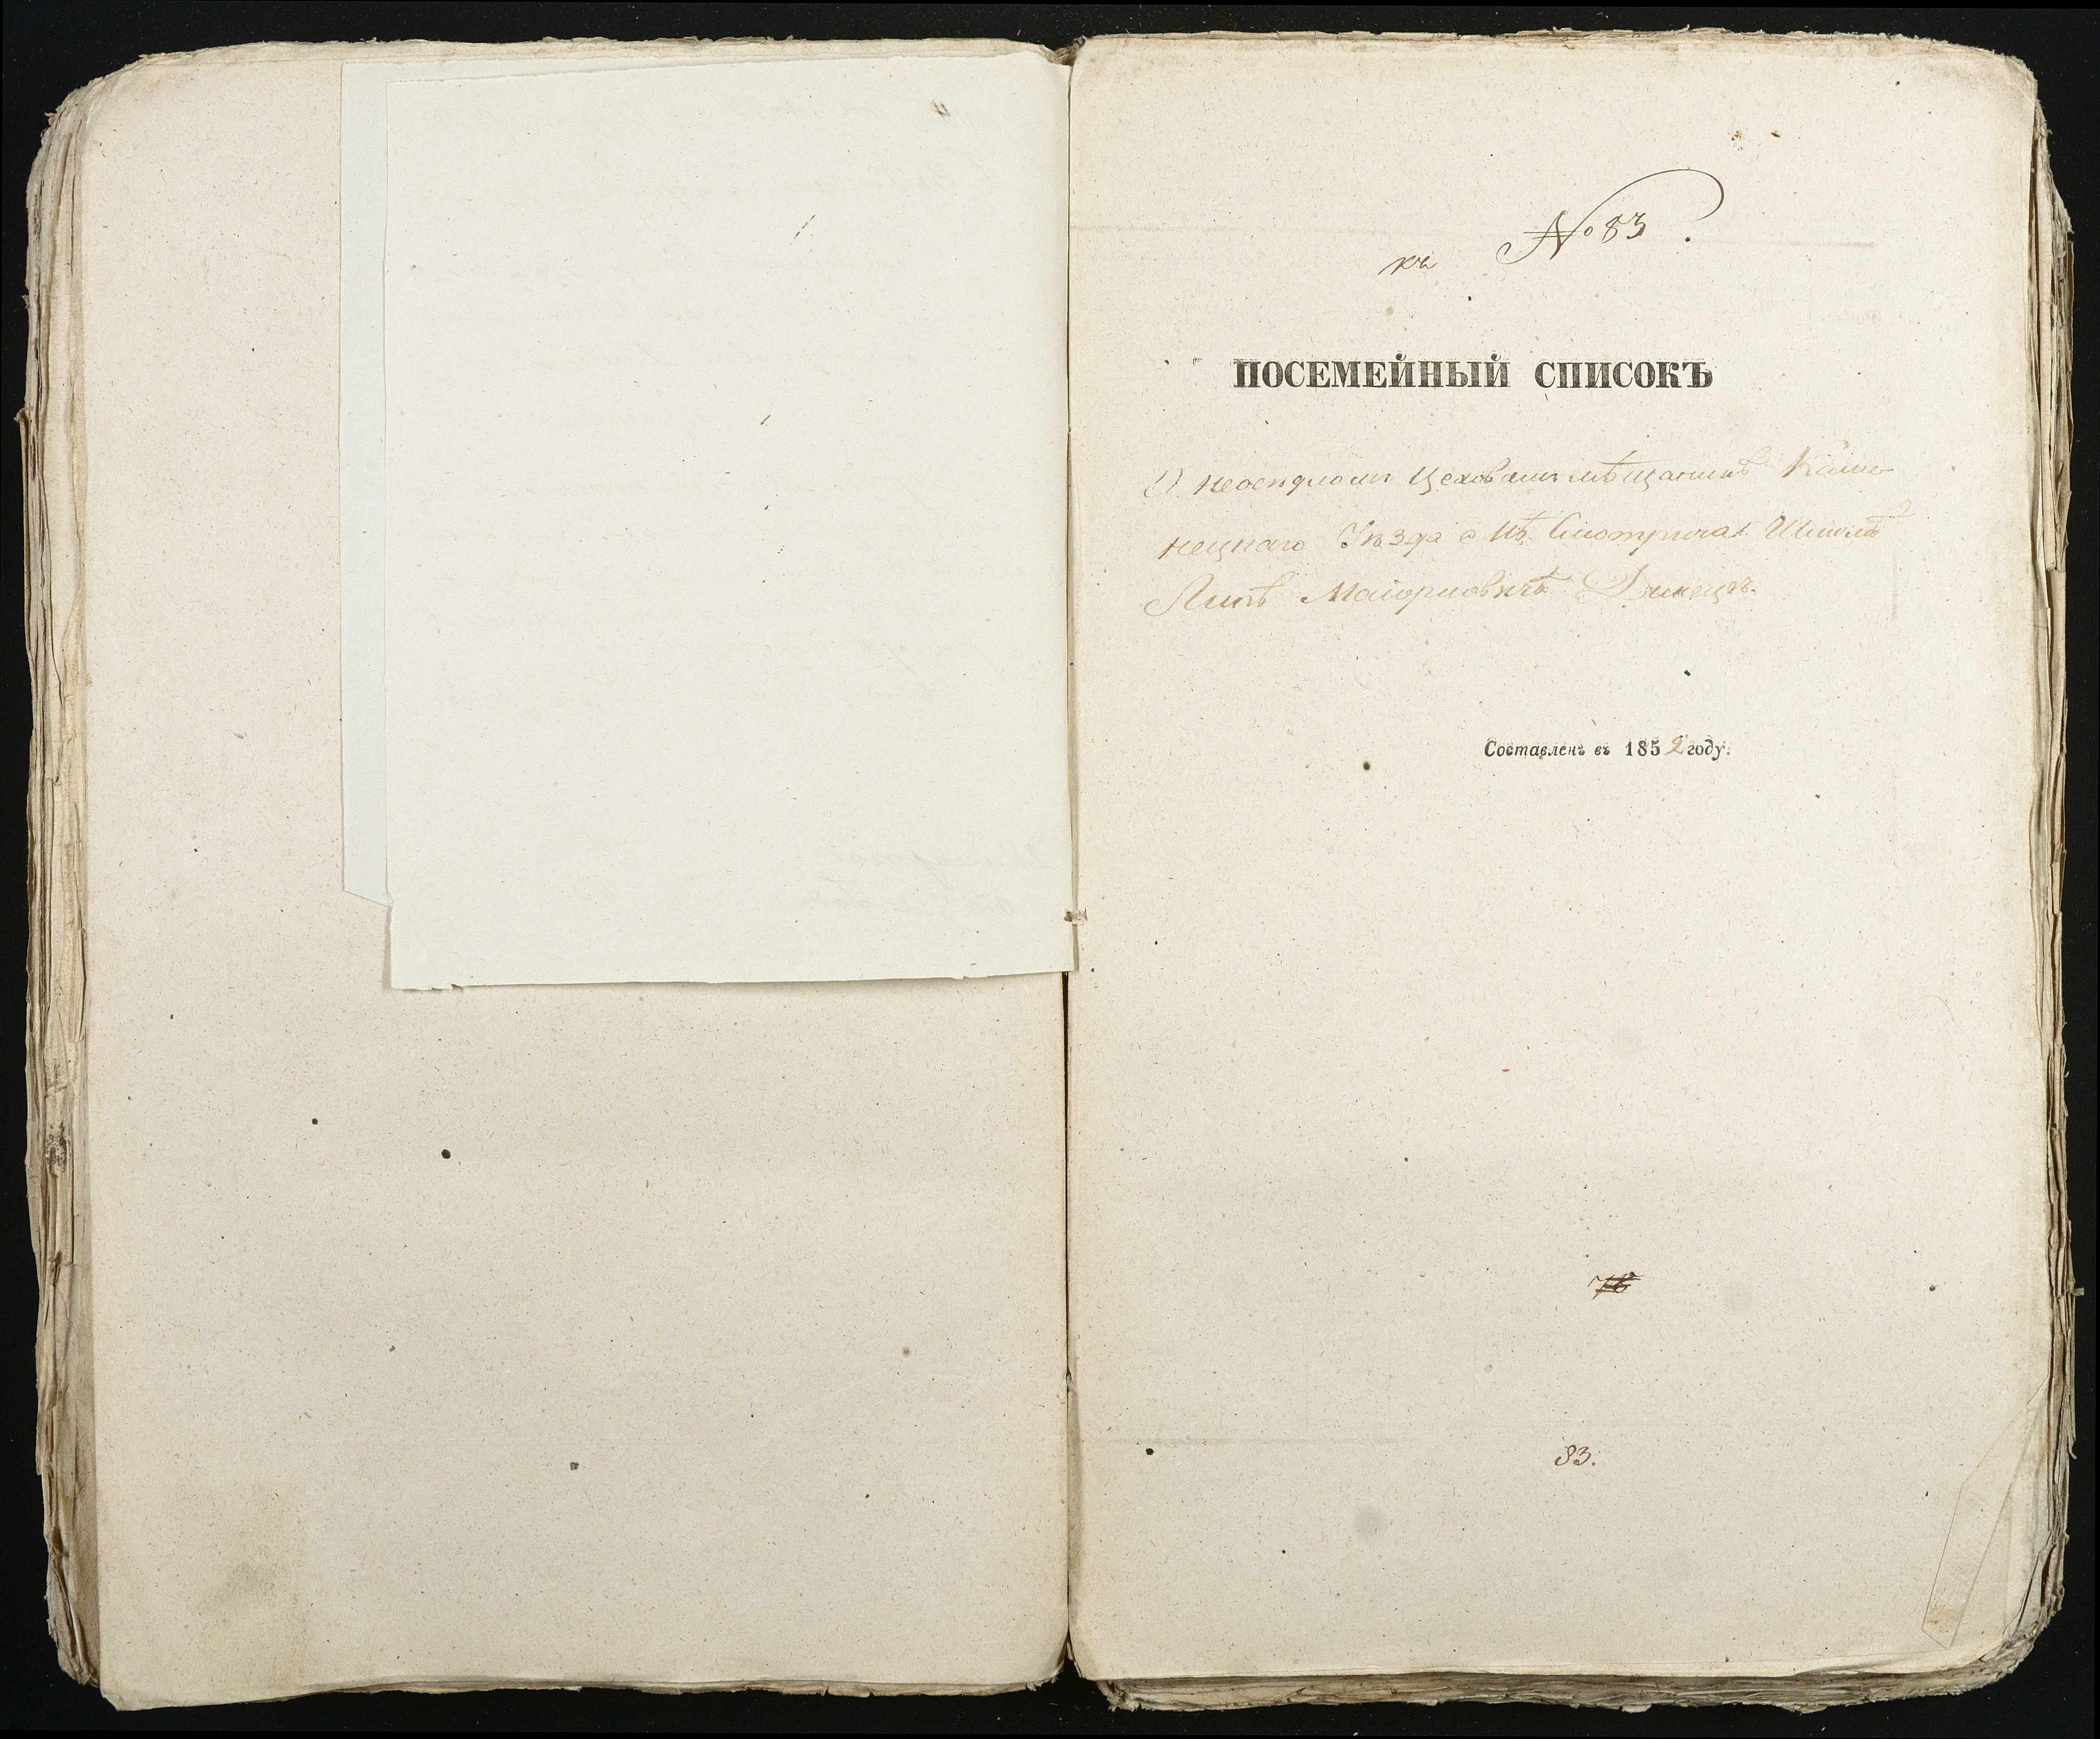 къ № 83.
ПОСЕМЕЙНЫЙ СПИСОКЪ
О неоседломъ Цеховомъ мѣщанинѣ Каме-
нецкаго Уѣзда Мѣ. Смотрича Шмулѣ
Липѣ
Составленъ въ 1852 году.
78
83.